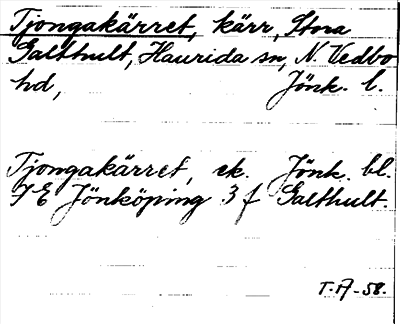 Tjongakärret, kärr, Stora
Galthult, Haurida sn, N. Vedbo
hd, Jönk. l.
Tjongakärret, ek. Jönk. bl.
7 E Jönköping 3 f Galthult.
T.A-58.